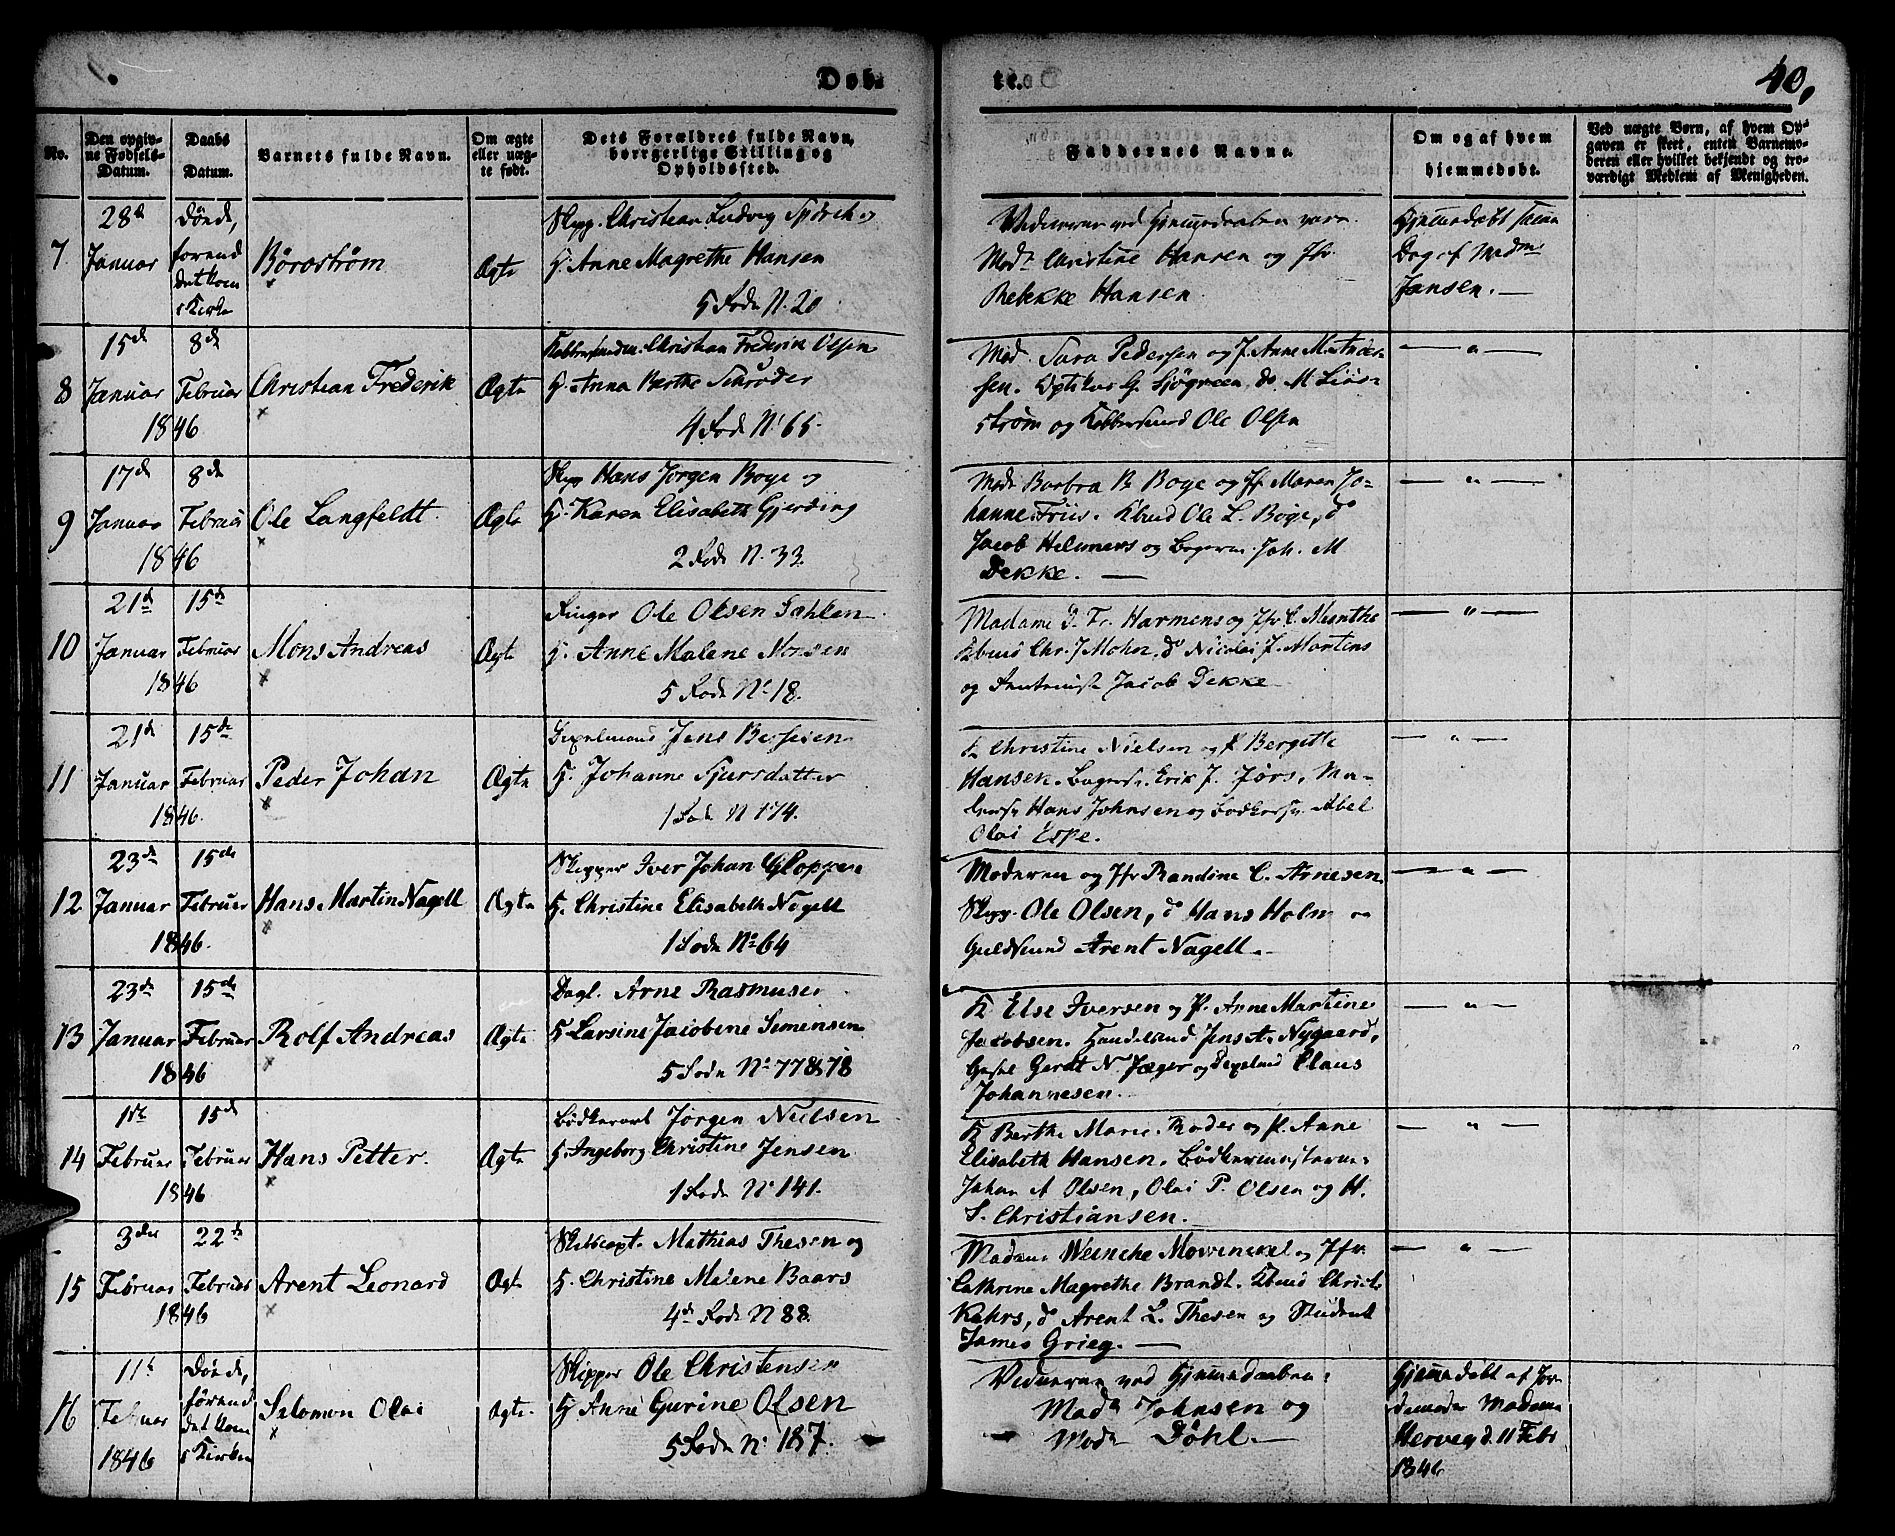 Døb-
te.
40,
No.
Den opgiv-
ne Fødsels-
Datum.
Daabs
Datum.
Barnets fulde Navn.
Om ægte
eller uæg-
te født.
Dets Forældres fulde Navn,
borgerlige Stilling og
Opholdssted.
Faddernes Navne.
Om og af hvem
hjemmedøbt.
Ved uægte Børn, af hvem Op-
gaven er skeet, enten Barnemo-
deren eller hvilket bekjendt og tro-
værdigt Medlem af Menigheden.
7
28d
Januar
Døde,
forend
det kom
i Kirke
Ægte
Skipp. Christian Ludvig
H. Anne Magrethe Hansen
5 Rode N. 20
Vidnerne ved Hjemmedaaben vare
Mad. Christine Hansen og Jfr
Rebekke Hansen
Hjemmedøbt samme
Dag af Madm
Jansen. —
8
15d
Januar
1846
8d
Februar
Christian Frederik
Ægte
Kobbersmedm. Christian Frederik Olsen
H. Anna Berthe Schrøder
4 Rode N. 65.
Mad. Sara Pedersen og J. Anne M. Ander
sen. G. Sjøgreen, do M.
strøm og Kobbersmed Ole Olsen
— " —
9
17d
Januar
1846
8d
Februar
Ole Langfeldt
Ægte
Skipp Hans Jørgen Boge og
H. Karen Elisabeth Gjerding
2 Rode N. 33.
Mad. Barbra B Boge og Jf Maren Jo-
hanne Friis. Kbmd Ole L. Boge, do
Jacob Helmers og Bagerm. Joh. M
Dekke. —
— " —
10
21d
Januar
1846
15d
Februar
Mons Andreas
Ægte
Ole Olsen Sæhlen
H. Anne Malene Monsen
5 Rode No 18.
Madame D. Fr. Harmens og Jfr C. Munthe
Kbmd Chr. J Mohn, do Nicolai J. Martens
og Jacob Dekke
— " —
11
21d
Januar
1846.
15de
Februar
Peder Johan
Ægte
Jens
H. Johanne Sjursdatter
1 Rode N 174.
K Christine Nielsen og P. Bergitte
Hansen. Bagers. Erik J. Jørs, Ma-
lers. Hans Johnsen og Bødkers. Abel
Olai Espe.
— " —
12
23de
Januar
1846.
15de
Februar
Hans Martin Nagell
Ægte
Skipper Iver Johan Gloppen
H. Christine Elisabeth Nagell
1 Rode No 64
Moderen og Jfr Randine C. Arnesen
Skipp. Ole Olsen, do Hans Holm og
Guldsmed Arent Nagell. —
— " —
13
23de
Januar
1846
15de
Februar
Rolf Andreas
Ægte
Dagl. Arne Rasmusen
H Larsine Jacobine Simensen
5 Rode No 77&78
K Else Iversen og P. Anne Martine
Jacobsen. Handelsmd Jens A. Nygaard,
Gerdt N. Jæger og Claus
Johannesen.
— " —
14
1ste
Februar
1846
15d
Februar
Hans Petter.
Ægte
Jørgen Nielsen
H. Ingeborg Christine Jensen
1 Rode No 141.
K Berthe Marie og P. Anne
Elisabeth Hansen. Bødkermesterne
Johan A Olsen, Olai P. Olsen og H.
S. Christiansen.
— " —
15
3die
Februar
1846
22de
Februar
Arent Leonard
Ægte
Skibscapt. Mathias Thesen og
H. Christine Malene Baars
4de Rode N 88.
Madame Wenche Mowinckel og Jfr
Cathrine Magrethe Brandt. Kbmd Christ.
Kahrs, do Arent L. Thesen og Student
James Grieg. —
— " —
16
11te
Februar
1846
Døde,
førend
det kom
i Kirken
Salomon Olai
Ægte
Skipper Ole Christensen
H Anne Gurine Olsen
5 Rode No 187.
Vidnerne ved Hjemmedaaben:
Madm Johnsen og
Madm Döhl. —
Hjemmedøbt af Jor
demoder Madame
d. 11 Febr
1846